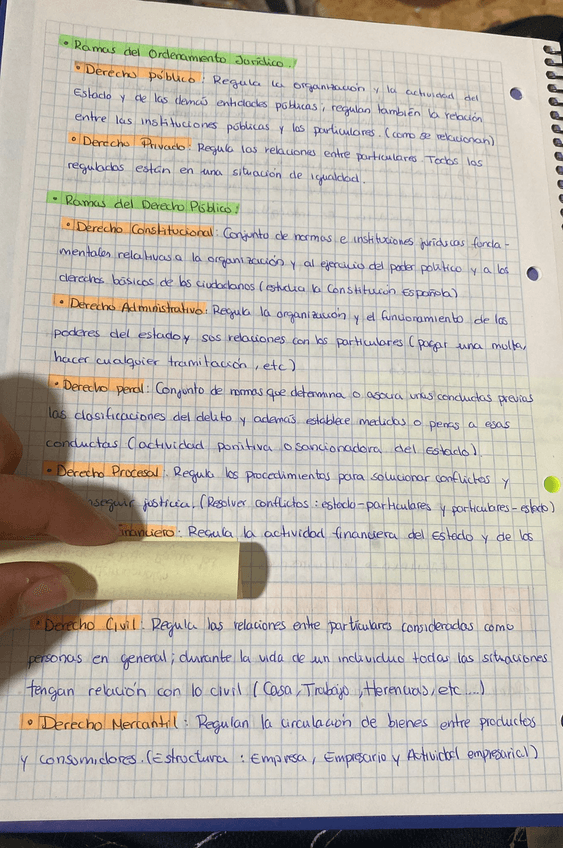 • Ramas del Ordenamiento Jurídico:
• Derecho público: Regula la organización y la actividad del
Estado y de las demás entidades públicas, regulan también la relación
entre las instituciones públicas y los particulares. (como se relacionan)
• Derecho Privado: Regula las relaciones entre particulares Todos los
regulados están en una situación de igualdad.
• Ramas del Derecho Público:
• Derecho Constitucional: Conjunto de normas e instituciones jurídicas funda-
mentales relativas a la organización y al ejercicio del poder político y a los
derechos básicos de los ciudadanos (estudia la Constitución Española)
• Derecho Administrativo: Regula la organización y el funcionamiento de los
poderes del estado y sus relaciones con los particulares (pagar una multa,
hacer cualquier tramitación, etc)
• Derecho penal: Conjunto de normas que determina o asocia unas conductas previas
las clasificaciones del delito y además establece medidas o penas a esas
conductas (actividad punitiva o sancionadora del Estado)
• Derecho Procesal: Regula los procedimientos para solucionar conflictos y
nseguir justicia. (Resolver conflictos: estado-particulares y particulares-estado)
inanciero: Regula la actividad financiera del Estado y de los
• Derecho Civil: Regula las relaciones entre particulares consideradas como
personas en general; durante la vida de un individuo todas las situaciones
tengan relación con lo civil (Casa, Trabajo, Herencias, etc...)
• Derecho Mercantil: Regulan la circulación de bienes entre productos
y consumidores. (Estructura: Empresa, Empresario y Actividad empresarial)